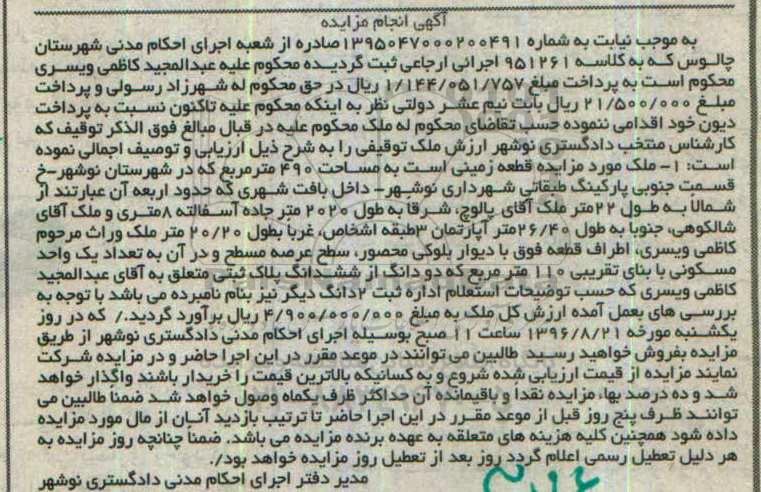 آگهی انجام مزایده
به موجب نیابت به شماره ۱۳۹۵۰۴۷۰۰۰۲۰۰۴۹۱ صادره از شعبه اجرای احکام مدنی شهرستان
چالوس که به کلاسه ۹۵۱۲۶۱ اجرائی ارجاعی ثبت گردیده محکوم علیه عبدالمجید کاظمی ویسری
محکوم است به پرداخت مبلغ ۱/۱۴۴/۰۵۱/۷۵۷ ریال در حق محکوم له شهرزاد رسولی و پرداخت
مبلغ ۲۱/۵۰۰/۰۰۰ ریال بابت نیم عشر دولتی نظر به اینکه محکوم علیه تاکنون نسبت به پرداخت
دیون خود اقدامی ننموده حسب تقاضای محکوم له ملک محکوم علیه در قبال مبالغ فوق الذکر توقیف که
کارشناس منتخب دادگستری نوشهر ارزش ملک توقیفی را به شرح ذیل ارزیابی و توصیف اجمالی نموده
است: ۱- ملک مورد مزایده قطعه زمینی است به مساحت ۴۹۰ مترمربع که در شهرستان نوشهر-خ
قسمت جنوبی پارکینگ طبقاتی شهرداری نوشهر- داخل بافت شهری که حدود اربعه آن عبارتند از
شمالا به طول ۲۲متر ملک آقای پالوج، شرقا به طول ۲۰۲۰ متر جاده آسفالته ۸متری و ملک آقای
شالکوهی، جنوبا به طول ۲۶/۴۰متر آپارتمان ۳طبقه اشخاص، غربا بطول ۲۰/۲۰ متر ملک وراث مرحوم
کاظمی ویسری، اطراف قطعه فوق با دیوار بلوکی محصور، سطح عرصه مسطح و در آن به تعداد یک واحد
مسکونی با بنای تقریبی ۱۱۰ متر مربع که دو دانگ از ششدانگ پلاک ثبتی متعلق به آقای عبدالمجید
کاظمی ویسری که حسب توضیحات استعلام اداره ثبت ۲دانگ دیگر نیز بنام نامبرده می باشد با توجه به
بررسی های بعمل آمده ارزش کل ملک به مبلغ ۴/۹۰۰/۰۰۰/۰۰۰ ریال برآورد گردید./ که در روز
یکشنبه مورخه ۱۳۹۶/۸/۲۱ ساعت ۱۱ صبح بوسیله اجرای احکام مدنی دادگستری نوشهر از طریق
مزایده بفروش خواهید رسید. طالبین می توانند در موعد مقرر در این اجرا حاضر و در مزایده شرکت
نمایند مزایده از قیمت ارزیابی شده شروع و به کسانیکه بالاترین قیمت را خریدار باشند واگذار خواهد
شد و ده درصد بها، مزایده نقدا و باقیمانده آن حداکثر ظرف یکماه وصول خواهد شد ضمنا طالبین می
توانند ظرف پنج روز قبل از موعد مقرر در این اجرا حاضر تا ترتیب بازدید آنان از مال مورد مزایده
داده شود همچنین کلیه هزینه های متعلقه به عهده برنده مزایده می باشد. ضمنا چنانچه روز مزایده به
هر دلیل تعطیل رسمی اعلام گردد روز بعد از تعطیل روز مزایده خواهد بود./
مدیر دفتر اجرای احکام مدنی دادگستری نوشهر